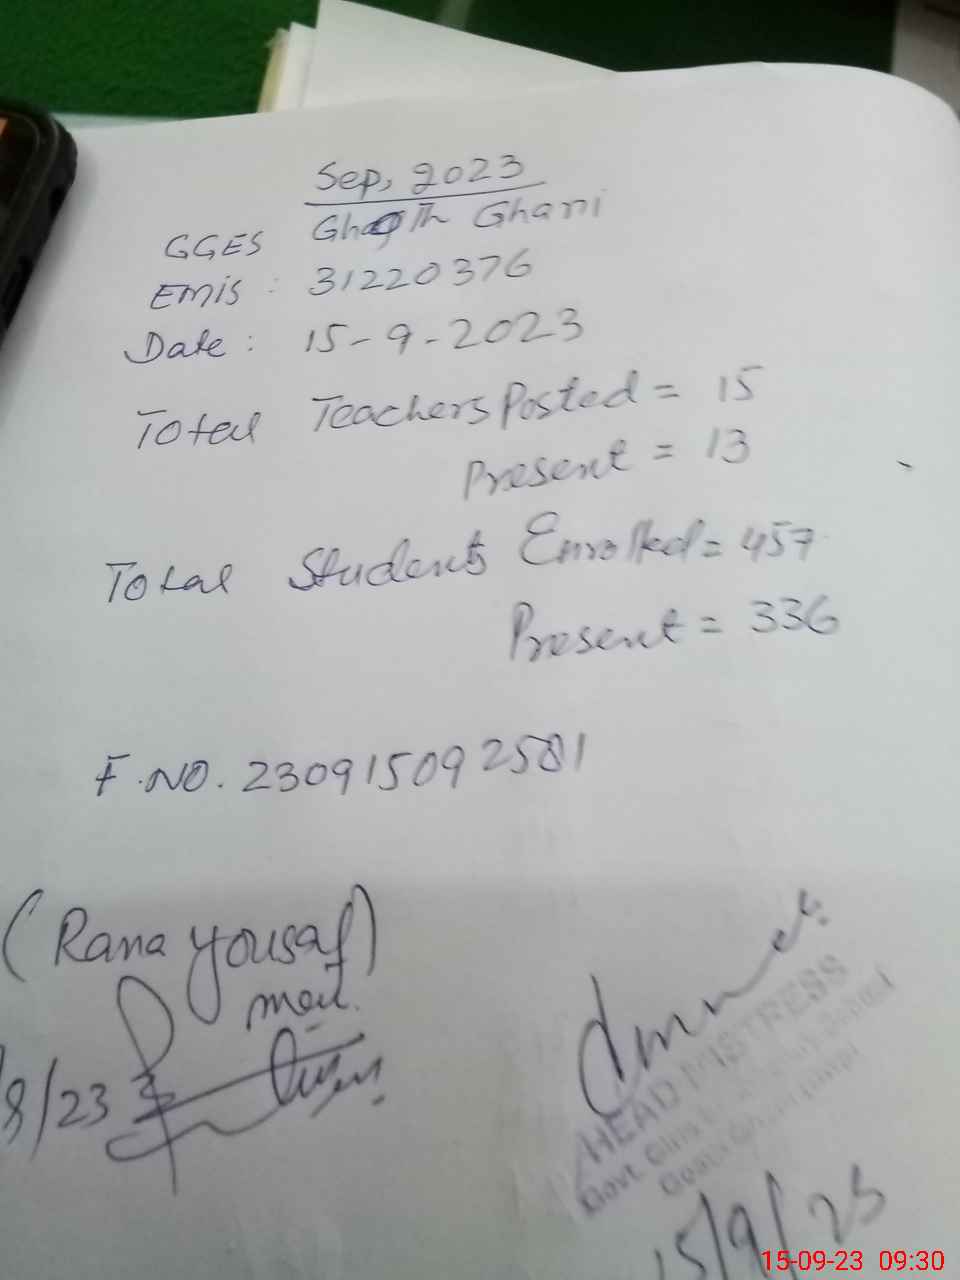 Sep, 2023
GGES Ghoth Ghani
Emis : 31220376
Date : 15-9-2023
Total Teachers Posted = 15
Present = 13
Total Students Enrolled = 457
Present = 336
F.NO. 230915092581
(Rana Yousaf)
8/23
HEADMISTRESS
Govt
15/9/23
15-09-23 09:30